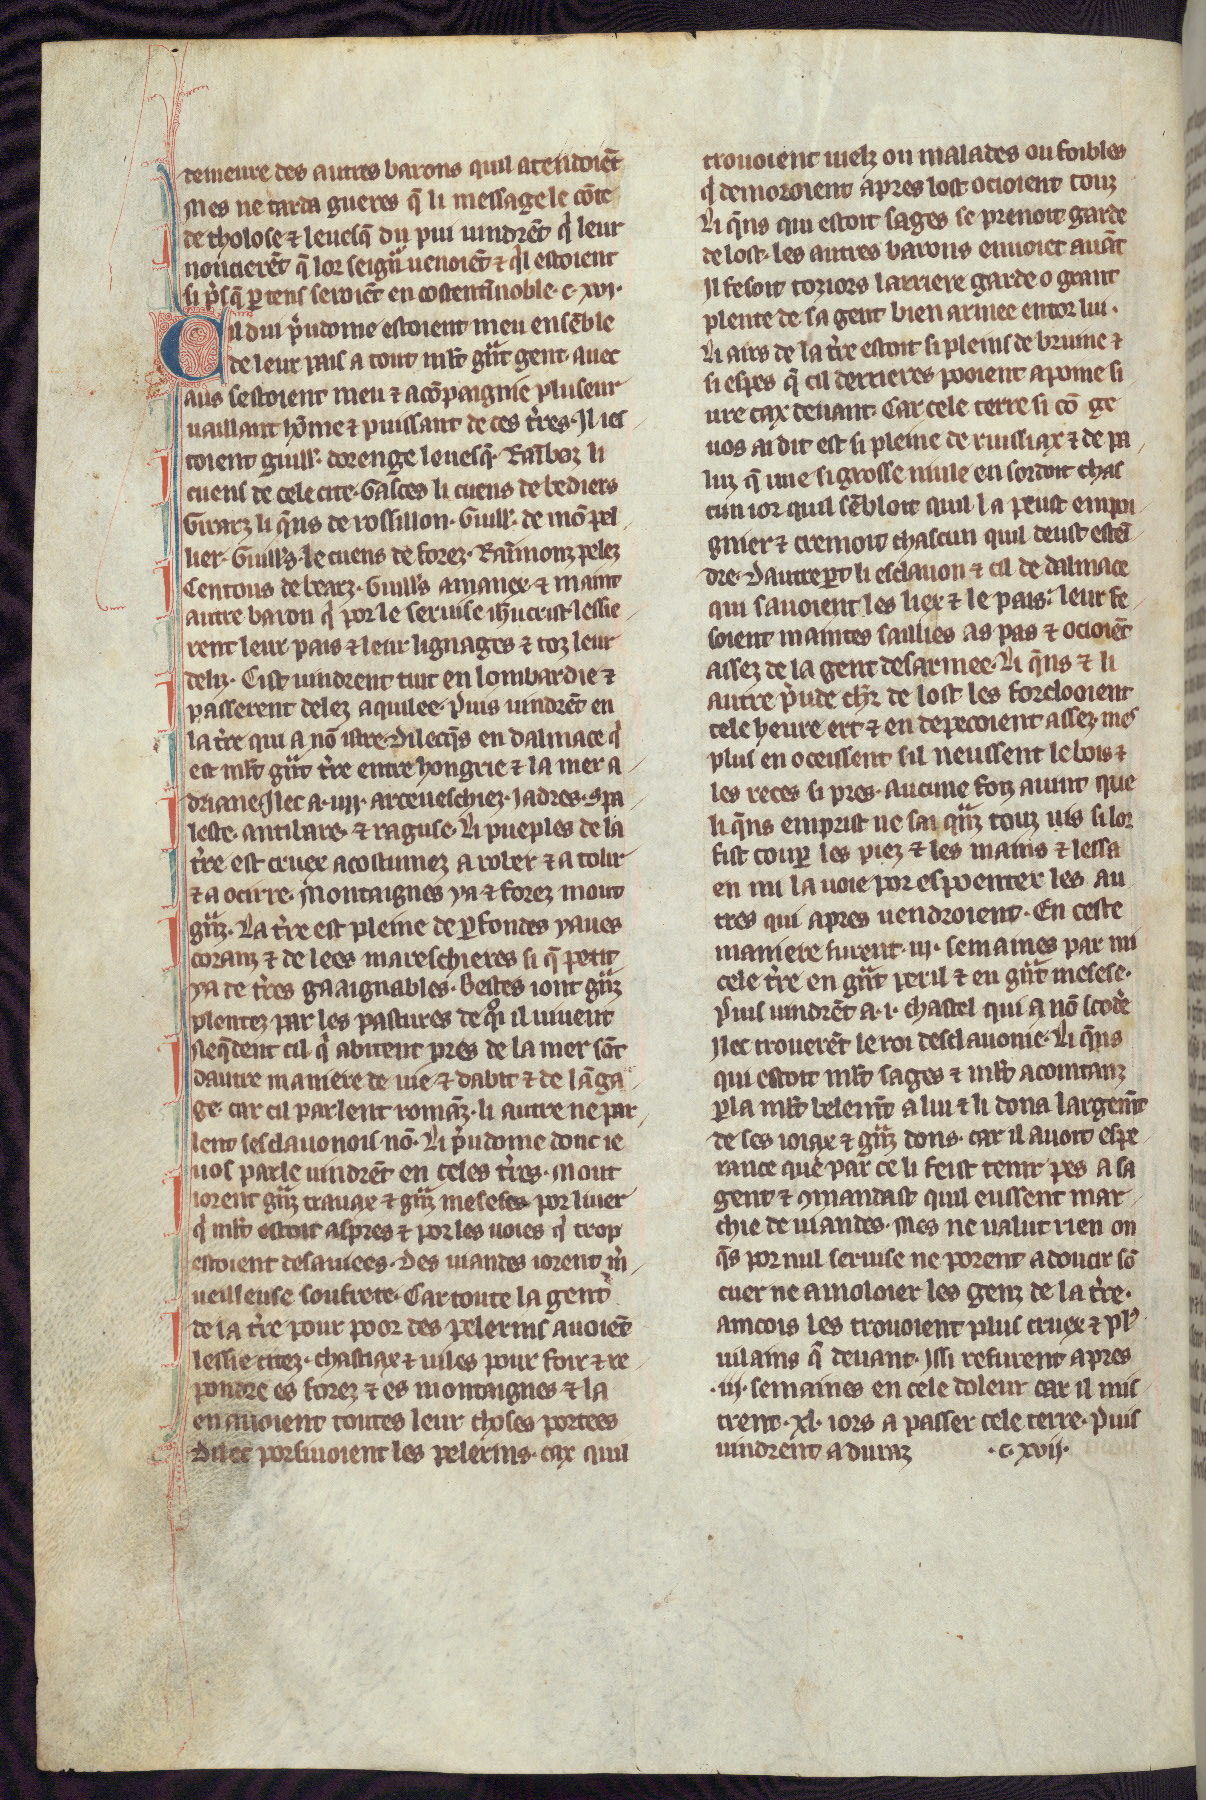 demeure des autres barons quil atendoiēt
Mes ne tarda gueres q̄ li message le cōte
de tholose ⁊ leuesq̄ du pui uindrēt qͥ leur
noncierēt q̄ lor seigñ uenoiēt ⁊ qͥl estoient
si p̄s q̄ ꝑ tens seroiēt en costentinoble. c. xvj.
Cil dui p̄udome estoient meu ensēble
de leur pais a tout ml̄t gn̄t gent. auec
aus sestoient meu ⁊ acōpaignie pluseur
uaillant hōme ⁊ puissant de ces t̄res. Il ies
toient guill'. dorenge leuesq̄. Raīboz li
cuens de cele cite. Gasces li cuens de bediers
Girarz li q̄ns de rossillon. Guill'. de mōpel
lier. Guill's. le cuens de forez. Raimonz pelez
Centons de bearz. Guill's amanex. ⁊ maint
autre baron qͥ por le seruise ih̄ucrist lessie
rent leur pais ⁊ leur lignages ⁊ toz leur
deliz. Cist uindrent tuit en lombardie ⁊
passerent delez aquilee. Puis uindrēt en
la t̄re qui a nō istre. Dilecq̄s en dalmace qͥ
est ml̄t gn̄t t̄re entre hongrie ⁊ la mer a
driane. Ilec a. iiij. arceueschiez. Iadres. spa
lette. antibare. ⁊ raguse. Li pueples de la
t̄re est cruex acostumez a rober ⁊ a tolir
⁊ a ocirre. Montaignes ya ⁊ forez mout
gn̄z. La t̄re est pleine de ꝑfondes yaues
coranz ⁊ de lees mareschieres si q̄ petit
ya de t̄res gaaignables. Bestes iont gn̄z
plentez par les pastures de qͦi il uiuent
Neq̄dent cil qͥ abitent pres de la mer sōt
dautre maniere de uie ⁊ dabit ⁊ de lāga
ge. car cil parlent romāz. li autre ne par
lent sesclauonois nō. Li p̄udome dont ie
uos parle uindrēt en celes t̄res. Mout
iorent gn̄z trauax ⁊ gn̄z meseses por liuer
qͥ ml̄t estoit aspres ⁊ por les uoies qͥ trop
estoient desaiuees. Des uiandes iorent m̄
ueilleuse soufrete. Car toute la gent
de la t̄re pour poor des pelerins auoiēt
lessie citez. chastiax ⁊ uiles pour foir ⁊ re
pondre es forez ⁊ es montaignes ⁊ la
en auoient toutes leur choses portees
Dilec porsiuoient les pelerins. cax quil
trouoient uielz ou malades ou foibles
qͥ demoroient apres lost ocioient touz
Li q̄ns qui estoit sages se prenoit garde
de lost. les autres barons enuoiet auāt
Il fesoit toziors larriere garde o grant
plente de sa gent bien armee entor lui.
Li airs de la t̄re estoit si pleins de bruine ⁊
si espes q̄ cil derrieres pooient a poine si
ure cax deuant. Car cele terre si cō ge
uos ai dit est si pleine de ruissiax ⁊ de pa
luz q̄ une si grosse niule en sordoit chas
cun ior quil sēbloit quil la peust empoi
gnier ⁊ cremoit chascun quil deust estei
dre. Dautre ꝑt li esclauon ⁊ cil de dalmace
qui sauoient les liex ⁊ le pais. leur fe
soient maintes saillies as pas ⁊ ocioiēt
assez de la gent desarmee. Li q̄ns ⁊ li
autre p̄ude ch'r de lost les forclooient
tele heure ert ⁊ en depecoient assez mes
plus en oceissent sil neussent le bois ⁊
les reces si pres. Aucune foiz auint que
li q̄ns emprist ne sai qn̄z touz uis si lor
fist couꝑ les piez ⁊ les mains ⁊ lessa
en mi la uoie por espoenter les au
tres qui apres uendroient. En ceste
maniere furent. iij. semaines par mi
cele t̄re en gn̄t peril ⁊ en gn̄t mesese.
Puis uindrēt a. i. chastel qui a nō scodre
Ilec trouerēt le roi desclauonie. Li q̄ns
qui estoit ml̄t sages ⁊ ml̄t acointanz
ꝑla ml̄t belemēt a lui ⁊ li dona largemēt
de ses ioiax ⁊ gn̄z dons. car il auoit espe
rance que par ce li feist tenir pes a sa
gent ⁊ ꝯmandast quil eussent mar
chie de uiandes. Mes ne ualut rien on
q̄s por nul seruise ne porent adoucir sō
cuer ne amoloier les genz de la t̄re.
aincois les trouoient plus cruex ⁊ plꝰ
uilains q̄ deuant. Issi refurent apres
. iij. semaines en cele doleur car il mis
trent. xl. iors a passer cele terre. Puis
uindrent a duraz .c. xvij.